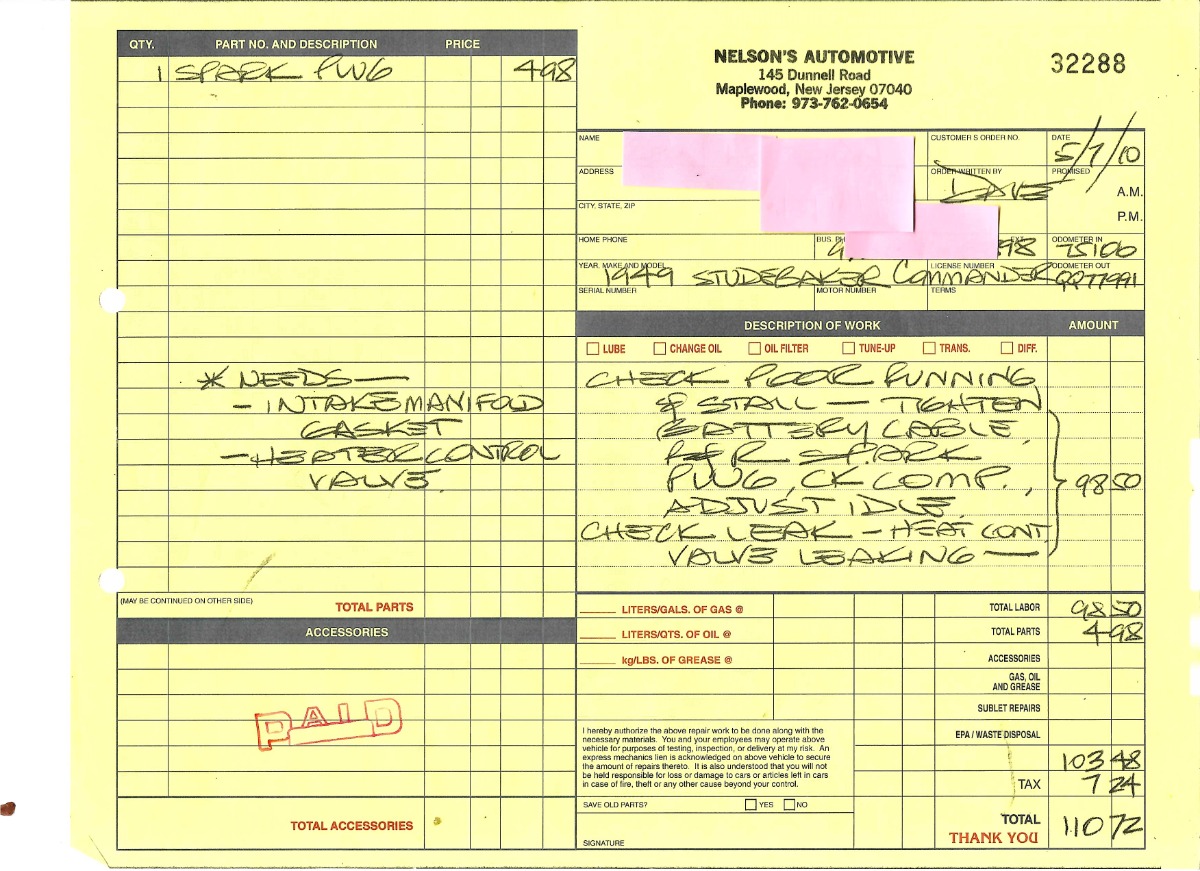 QTY. PART NO. AND DESCRIPTION PRICE
1 SPARK PLUG 4 98
* NEEDS —
- INTAKE MANIFOLD
GASKET
- HEATER CONTROL
VALVE.
(MAY BE CONTINUED ON OTHER SIDE) TOTAL PARTS
ACCESSORIES
PAID
TOTAL ACCESSORIES
NELSON'S AUTOMOTIVE
145 Dunnell Road
Maplewood, New Jersey 07040
Phone: 973-762-0654
32288
NAME CUSTOMER'S ORDER NO. DATE
5/7/10
ADDRESS ORDER WRITTEN BY PROMISED
DAVE A.M.
CITY, STATE, ZIP P.M.
HOME PHONE BUS. PH EXT. ODOMETER IN
9 98 75106
YEAR, MAKE AND MODEL LICENSE NUMBER ODOMETER OUT
1949 STUDEBAKER COMMANDER QQ77991
SERIAL NUMBER MOTOR NUMBER TERMS
DESCRIPTION OF WORK AMOUNT
LUBE CHANGE OIL OIL FILTER TUNE-UP TRANS. DIFF.
CHECK POOR RUNNING
& STALL — TIGHTEN
BATTERY CABLE,
R&R SPARK
PLUG, CK COMP., 98 50
ADJUST IDLE.
CHECK LEAK - HEAT CONT
VALVE LEAKING —
LITERS/GALS. OF GAS @ TOTAL LABOR 98 50
LITERS/QTS. OF OIL @ TOTAL PARTS 4 98
kg/LBS. OF GREASE @ ACCESSORIES
GAS, OIL
AND GREASE
SUBLET REPAIRS
EPA / WASTE DISPOSAL
103 48
TAX 7 24
TOTAL 110 72
THANK YOU
I hereby authorize the above repair work to be done along with the
necessary materials. You and your employees may operate above
vehicle for purposes of testing, inspection, or delivery at my risk. An
express mechanics lien is acknowledged on above vehicle to secure
the amount of repairs thereto. It is also understood that you will not
be held responsible for loss or damage to cars or articles left in cars
in case of fire, theft or any other cause beyond your control.
SAVE OLD PARTS? YES NO
SIGNATURE